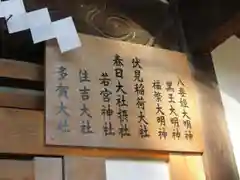 八幡大明神
黒玉大明神
福繁大明神
伏見稲荷大社
春日大社摂社
若宮神社
住吉大社
多賀大社